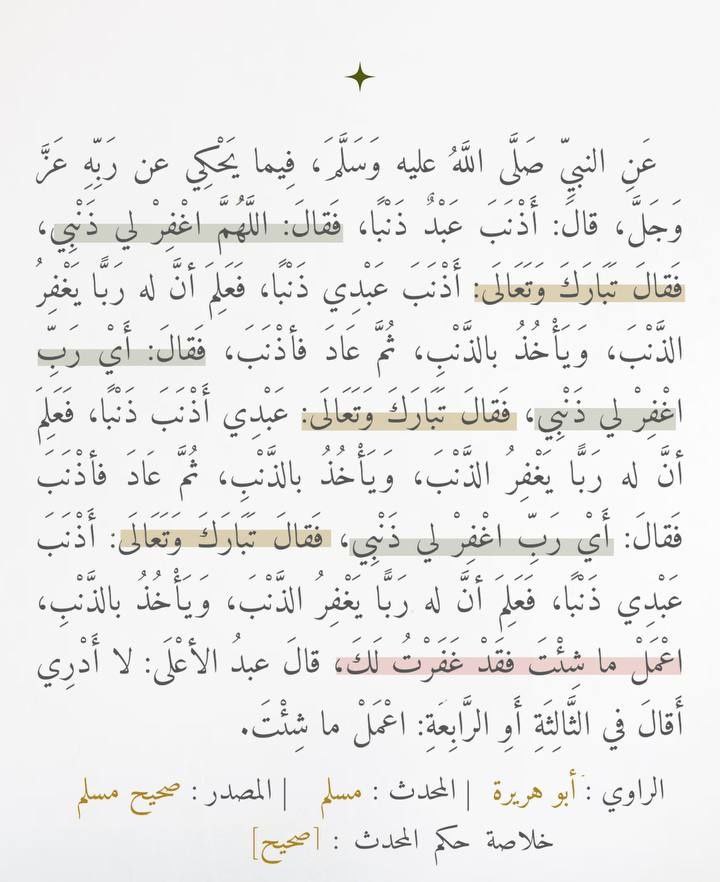 عَنِ النبيِّ صَلَّى اللَّهُ عليه وَسَلَّمَ، فِيما يَحْكِي عن رَبِّهِ عَزَّ
وَجَلَّ، قالَ: أَذْنَبَ عَبْدٌ ذَنْبًا، فَقالَ: اللَّهُمَّ اغْفِرْ لي ذَنْبِي،
فَقالَ تَبَارَكَ وَتَعَالَى: أَذْنَبَ عَبْدِي ذَنْبًا، فَعَلِمَ أنَّ له رَبًّا يَغْفِرُ
الذَّنْبَ، وَيَأْخُذُ بالذَّنْبِ، ثُمَّ عَادَ فأذْنَبَ، فَقالَ: أَيْ رَبِّ
اغْفِرْ لي ذَنْبِي، فَقالَ تَبَارَكَ وَتَعَالَى: عَبْدِي أَذْنَبَ ذَنْبًا، فَعَلِمَ
أنَّ له رَبًّا يَغْفِرُ الذَّنْبَ، وَيَأْخُذُ بالذَّنْبِ، ثُمَّ عَادَ فأذْنَبَ
فَقالَ: أَيْ رَبِّ اغْفِرْ لي ذَنْبِي، فَقالَ تَبَارَكَ وَتَعَالَى: أَذْنَبَ
عَبْدِي ذَنْبًا، فَعَلِمَ أنَّ له رَبًّا يَغْفِرُ الذَّنْبَ، وَيَأْخُذُ بالذَّنْبِ،
اعْمَلْ ما شِئْتَ فقَدْ غَفَرْتُ لَكَ، قالَ عبدُ الأعْلَى: لا أَدْرِي
أَقالَ في الثَّالِثَةِ أَوِ الرَّابِعَةِ: اعْمَلْ ما شِئْتَ.
الراوي : أبو هريرة | المحدث : مسلم | المصدر : صحيح مسلم
خلاصة حكم المحدث : [صحيح]